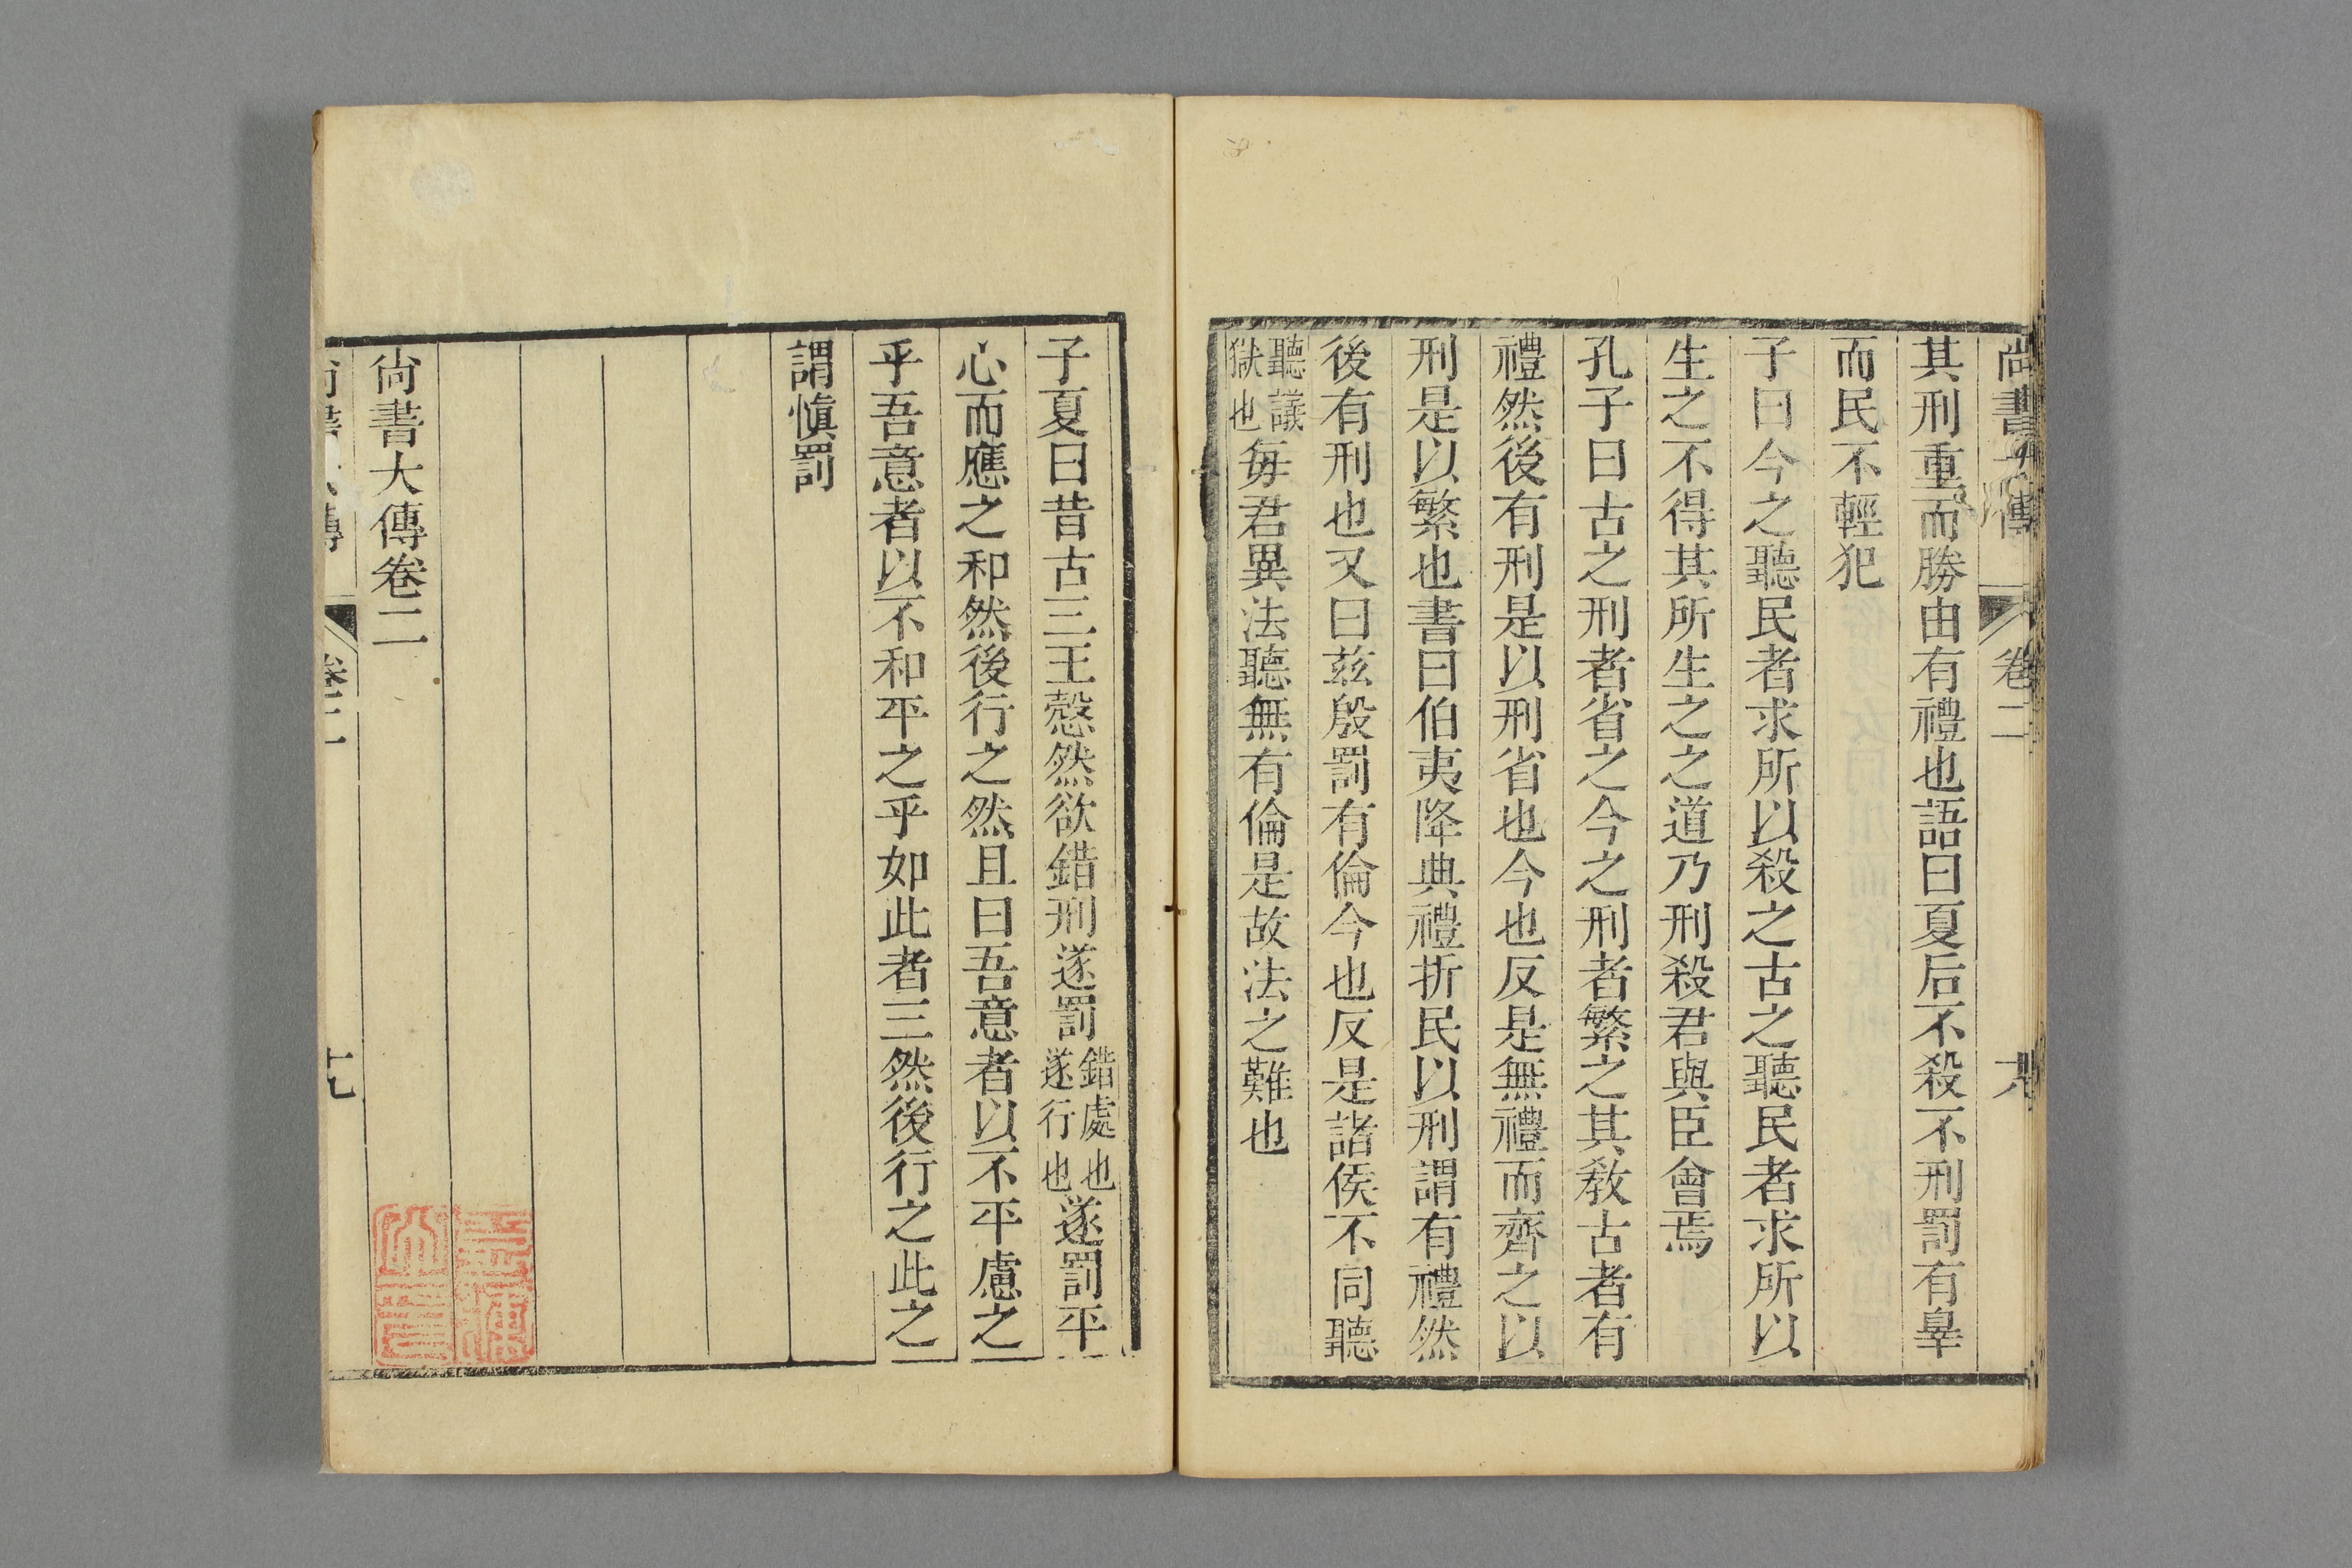 尚書大傳 卷二
其刑重而勝由有禮也語曰夏后不殺不刑罰有辠
而民不輕犯
子曰今之聽民者求所以殺之古之聽民者求所以
生之不得其所生之之道乃刑殺君與臣會焉
孔子曰古之刑者省之今之刑者繁之其敎古者有
禮然後有刑是以刑省也今也反是無禮而齊之以
刑是以繁也書曰伯夷降典禮折民以刑謂有禮然
後有刑也又曰茲殷罰有倫今也反是諸侯不同聽
聽議獄也每君異法聽無有倫是故法之難也
子夏曰昔古三王慤然欲錯刑遂罰錯處也遂行也遂罰平
心而應之和然後行之然且曰吾意者以不平慮之
乎吾意者以不和平之乎如此者三然後行之此之
謂愼罰
尙書大傳卷二
卷二 十九